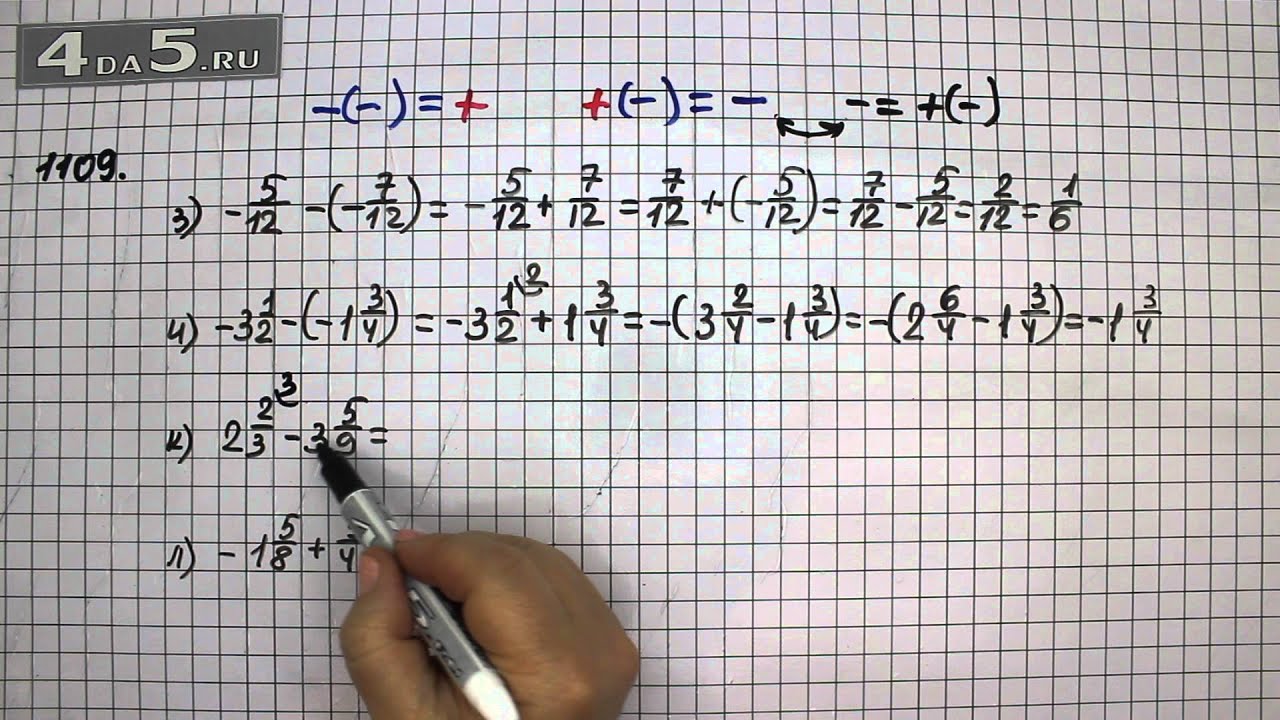 4DA5.RU
-(-) = +   +(-) = -   - = +(-)
1109.
з) -5/12 - (-7/12) = -5/12 + 7/12 = 7/12 + (-5/12) = 7/12 - 5/12 = 2/12 = 1/6
и) -3 1/2 - (-1 3/4) = -3 1/2 ⁽² + 1 3/4 = -(3 2/4 - 1 3/4) = -(2 6/4 - 1 3/4) = -1 3/4
к) 2 2/3 ⁽³ - 3 5/9 =
л) -1 5/8 +